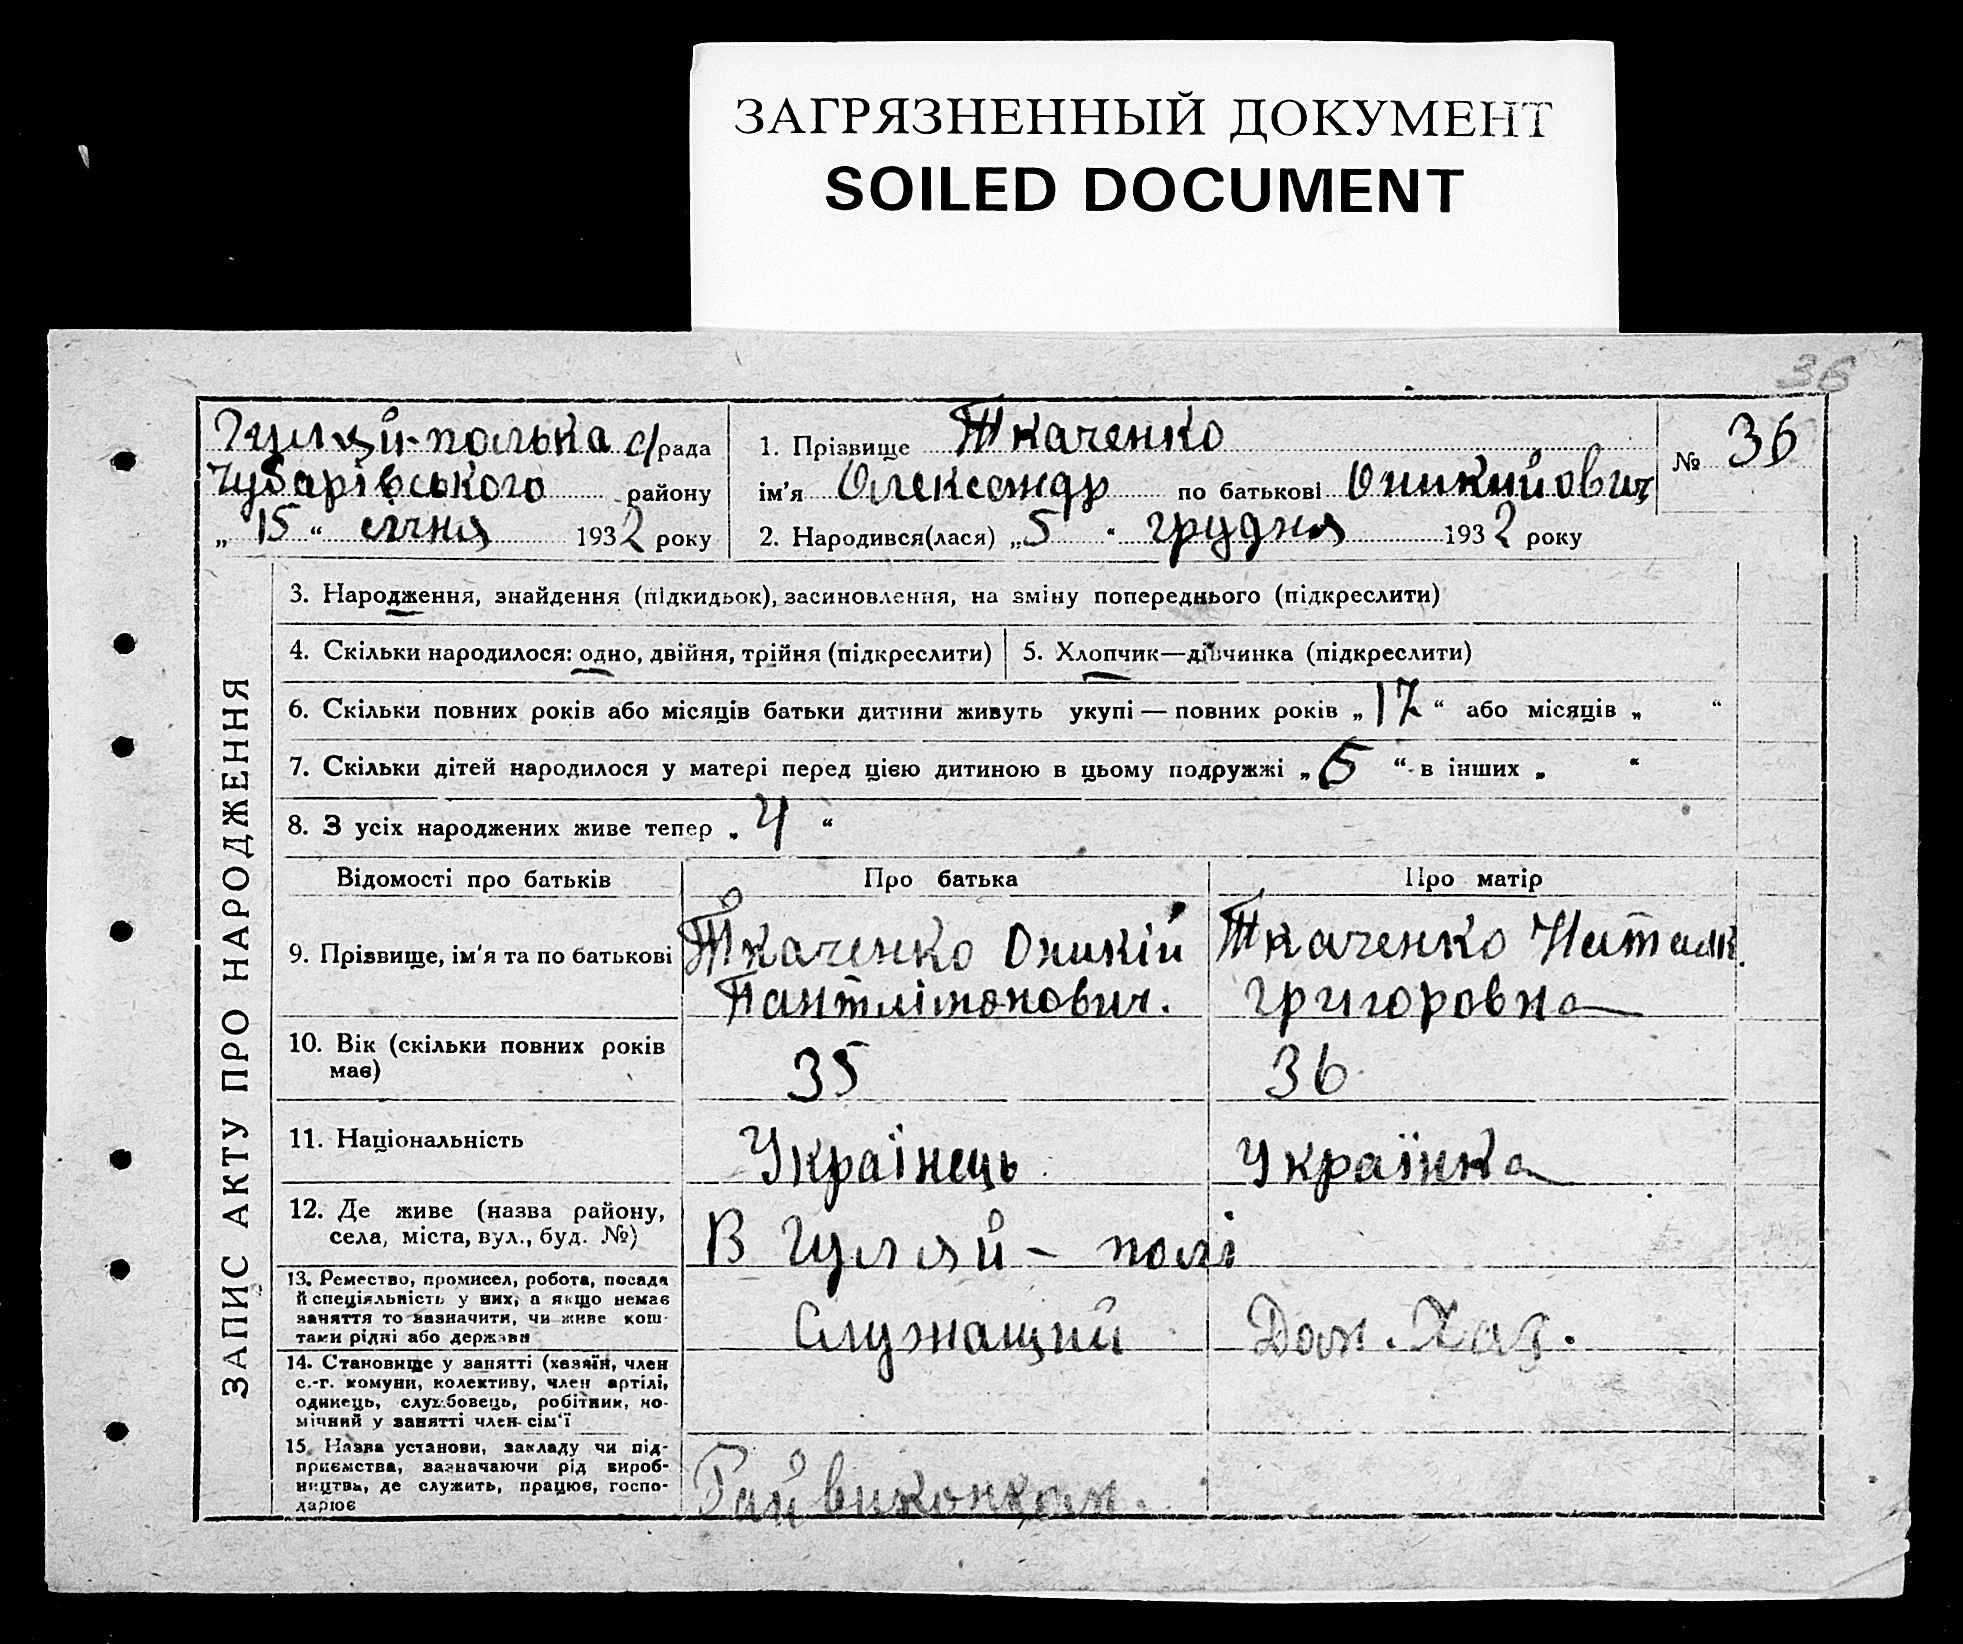 ЗАГРЯЗНЕННЫЙ ДОКУМЕНТ
SOILED DOCUMENT
36
Гуляй-полька с/рада
Чубарівського району
„ 15 “ січня 1932 року
1. Прізвище Ткаченко
ім'я Олександр по батькові Оникийович
2. Народився(лася) „ 5 “ грудня 1932 року
№ 36
ЗАПИС АКТУ ПРО НАРОДЖЕННЯ
3. Народження, знайдення (підкидьок), засиновлення, на зміну попереднього (підкреслити)
4. Скільки народилося: одно, двійня, трійня (підкреслити)
5. Хлопчик—дівчинка (підкреслити)
6. Скільки повних років або місяців батьки дитини живуть укупі — повних років „ 17 “ або місяців „ “
7. Скільки дітей народилося у матері перед цією дитиною в цьому подружжі „ 5 “ в інших „ “
8. З усіх народжених живе тепер „ 4 “
Відомості про батьків
Про батька
Про матір
9. Прізвище, ім'я та по батькові
Ткаченко Оникій
Пантлімонович.
Ткаченко Наталк.
Григоровна
10. Вік (скільки повних років
має)
35
36
11. Національність
Українець
Українка
12. Де живе (назва району,
села, міста, вул., буд. №)
В Гуляй - полі
13. Ремество, промисел, робота, посада
й спеціяльність у них, а якщо немає
заняття то зазначити, чи живе кош-
тами рідні або держави
Служащий
Дом. Хаз.
14. Становище у занятті (хазяїн, член
с.-г. комуни, колективу, член артілі,
одинець, службовець, робітник, по-
мічний у занятті член сім'ї
15. Назва установи, закладу чи під-
приємства, зазначаючи рід вироб-
ництва, де служить, працює, госпо-
дарює
Райвиконком.